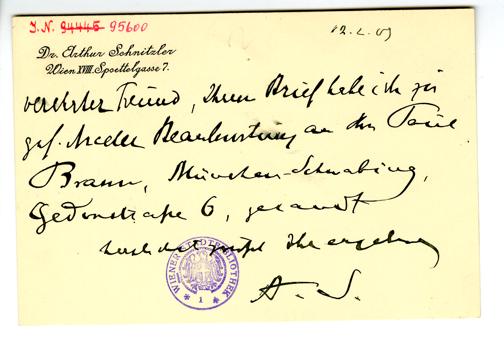 J. N. 94445 95600
12. 2. 09
Dr. Arthur Schnitzler
Wien XVIII. Spoettelgasse 7.
verehrter Freund, Ihren Brief habe ich zur
gef. Beantwortung an Hn Paul
Brann, München-Schwabing,
Gedonstraße 6, gesandt
herzlichst grüßt Ihr ergebner
A. S.
WIENER STADTBIBLIOTHEK
1